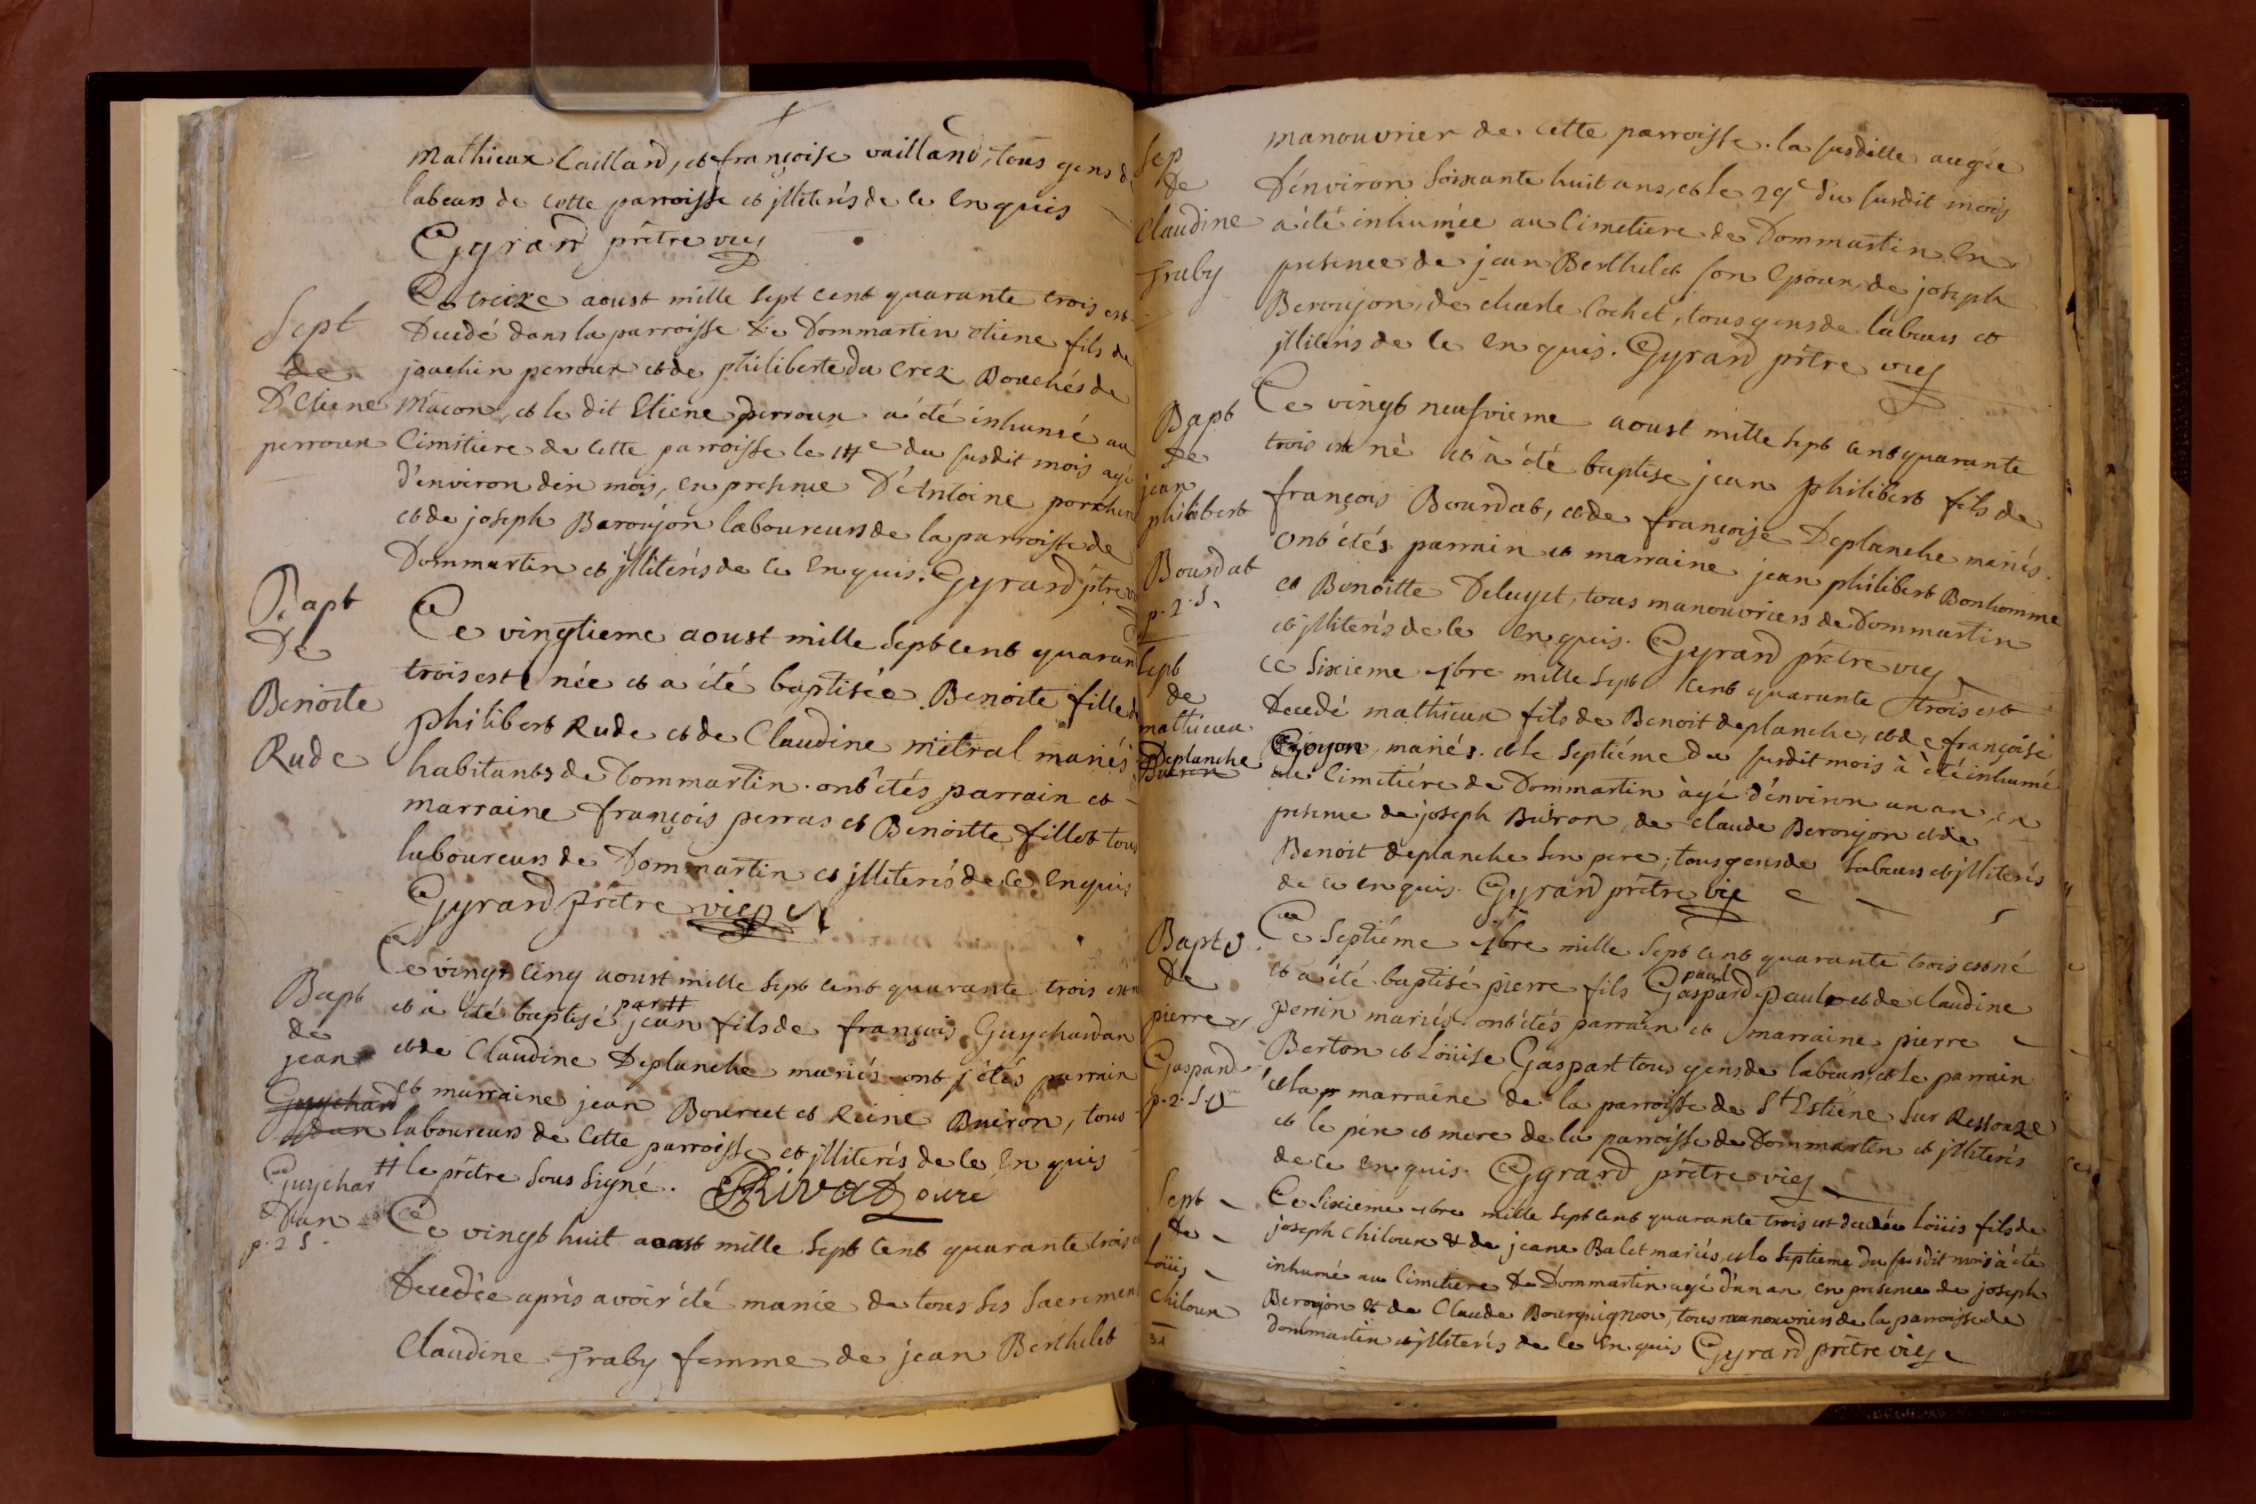 mathieux Caillard, et françoise vailland, tous gens de
labeurs de cette parroisse et jlliterés de ce enquis
Gyrard prêtre vic
Sept
de
D'Etiene
perroux
Ce treize aoust mille sept cent quarante trois est
Decedé dans la parroisse de Dommartin etiene fils de
joachin perroux et de philiberte du Crez Bouchés de
Mâcon, et le dit Etiene perroux a été inhumé au
Cimitiere de cette parroisse le 14e du susdit mois agé
d'environ dix mois, en presence D'Antoine
et de joseph Baroujon laboureurs de la parroisse de
Dommartin et jlliterés de ce enquis. Gyrard ptre
Bapt
De
Benoite
Rude
Ce vingtieme aoust mille Sept cent quarante
trois est née et a été baptisée Benoite fille de
philibert Rude et de Claudine mitral mariés
habitants de Dommartin. ont étés parrain et
marraine françois perras et Benoitte fillet tous
laboureurs de Dommartin et jlliterés de ce enquis
Gyrard prêtre vic
Bapt
de
jean
Guychard
dan
Guychar
Dan
p. 2 s.
Ce vingt cinq aoust mille sept cent quarante trois est né
et à été baptisé par # jean fils de françois Guychardan
et de Claudine Deplanche mariés ont étés parrain
et marraine jean Bourcet et Reine Buiron, tous
laboureurs de Cette parroisse et jlliterés de ce enquis
# le prêtre sous signé. Rivat curé
Ce vingt huit aoust mille Sept cent quarante trois est
Decedée après avoir été manie de tous ses sacrements
Claudine Traby femme de jean Berthelet
Sep
De
Claudine
Traby
manouvrier de cette parroisse. la susditte augée
D'environ soixante huit ans, et le 29e du susdit mois
a été inhumée au Cimetiere de Dommartin en
presence de jean Berthelet son Epoux, de joseph
Beroujon, de charle Cochet, tous gens de labeurs et
jlliterés de ce enquis. Gyrard prêtre vic
Bapt
de
jean
philibert
Bourdat
p. 2. s.
Ce vingt neufvieme aoust mille sept cent quarante
trois est né et à été baptise jean philibert fils de
françois Bourdat, et de françoise Deplanche mariés.
ont étés parrain et marraine jean philibert Bonhomme
et Benoitte Deluyet, tous manouvriers de Dommartin
et jlliterés de ce enquis. Gyrard prêtre vic
Sept
de
mathieux
Deplanche
Buiron
ce sixieme 7bre mille sept cent quarante trois est
Decedé mathieux fils de Benoit deplanche, et de françoise
Goyon mariés. et le septiéme du susdit mois à été inhumé
au Cimitiére de Dommartin àgé d'environ un an, en
presence de joseph Buiron, de claude Beroujon et de
Benoit deplanche son pere, tous gens de labeurs et jlliterés
de ce enquis. Gyrard prêtre vic
Bapt
De
pierre
Gaspard
p. 2. s.
Ce Septiéme 7bre mille Sept cent quarante trois est né
et a été baptisé pierre fils Gaspard paul et de Claudine
perrin mariés. ont étés parrain et marraine pierre
Berton et Loüise Gaspart tous gens de labeurs, et le parrain
et la marraine de la parroisse de St Estiéne sur Ressouze
et le pére et mere de la parroisse de Dommartin et jlliterés
de ce enquis. Gyrard prêtre vic
Sept
de
Loüis
Chiloux
Ce Sixieme 7bre mille Sept cent quarante trois est decedé Loüis fils de
joseph Chiloux & de jeane Balet mariés, et le septieme du susdit mois à été
inhumé au Cimetiere de Dommartin agé d'un an, en presence de joseph
Beroujon & de Claude Bourguignon, tous manouvriers de la parroisse de
dommartin et jlliterés de ce enquis Gyrard prêtre vic